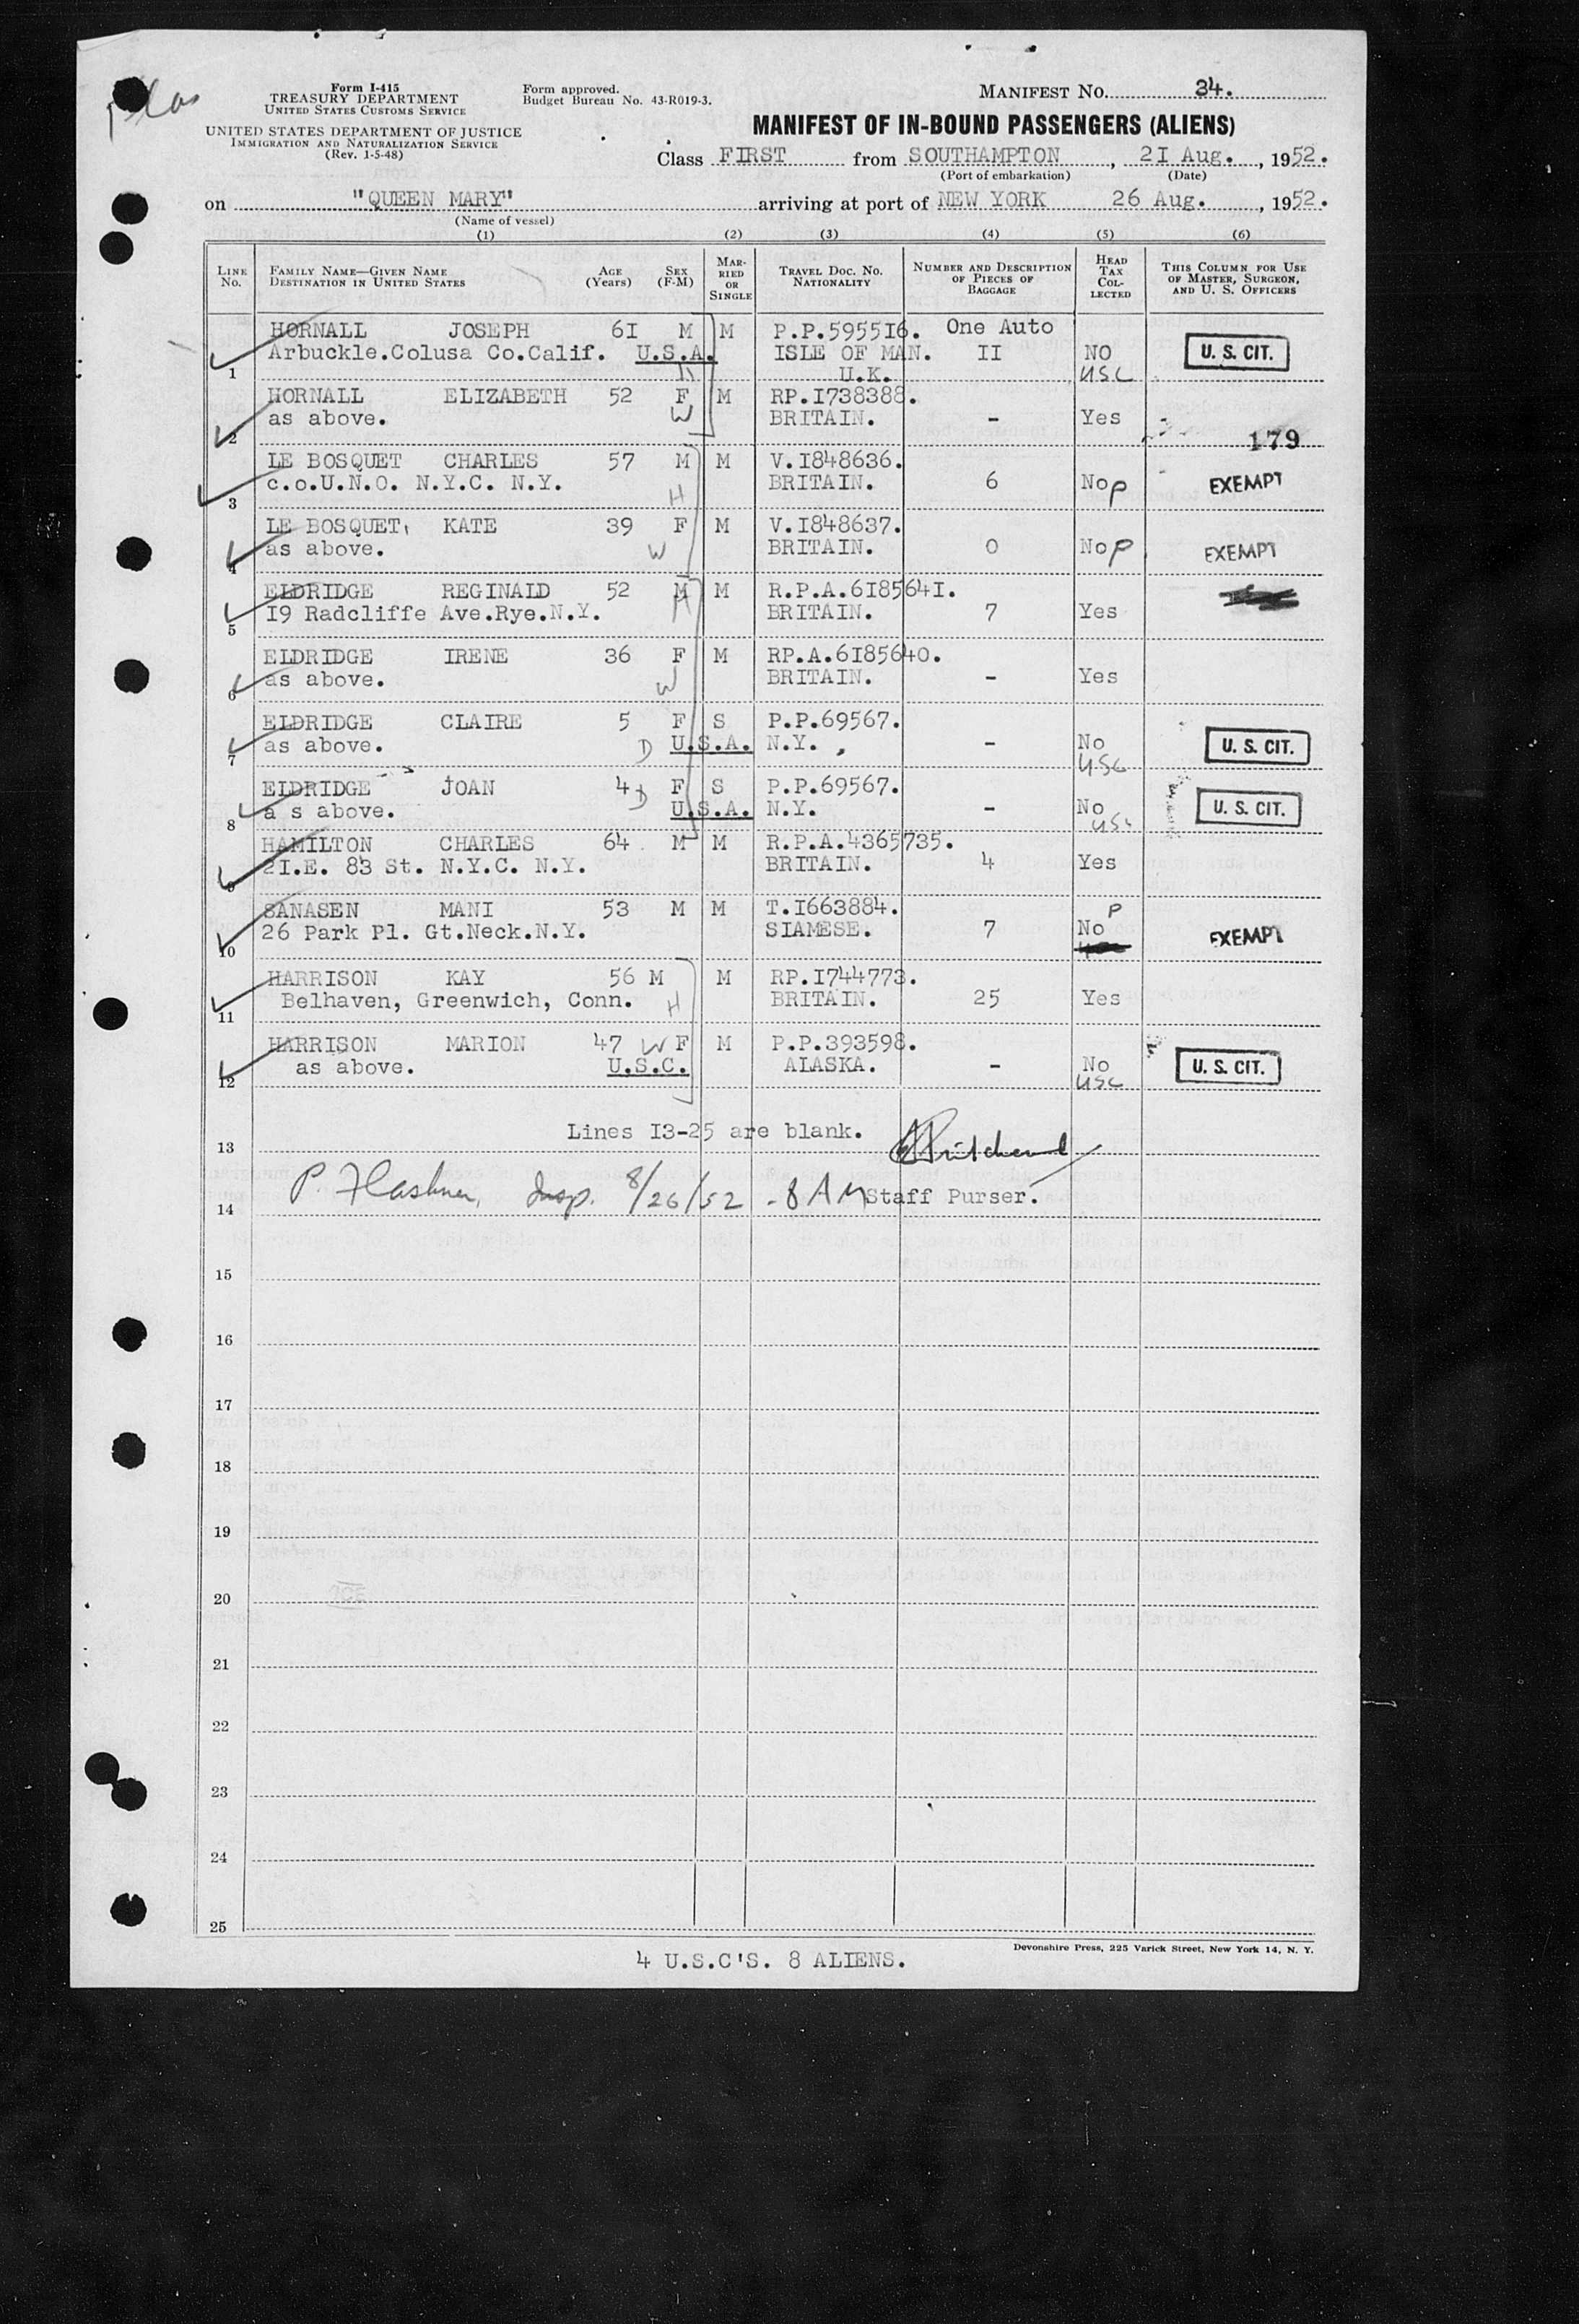 Form I-415
TREASURY DEPARTMENT
UNITED STATES CUSTOMS SERVICE
UNITED STATES DEPARTMENT OF JUSTICE
IMMIGRATION AND NATURALIZATION SERVICE
(Rev. 1-5-48)
Form approved.
Budget Bureau No. 43-R019-3.
MANIFEST NO. 34.
MANIFEST OF IN-BOUND PASSENGERS (ALIENS)
Class FIRST from SOUTHAMPTON, 2I Aug., 1952.
(Port of embarkation) (Date)
on "QUEEN MARY" arriving at port of NEW YORK 26 Aug., 1952.
(Name of vessel)
(1) (2) (3) (4) (5) (6)
LINE NO. FAMILY NAME—GIVEN NAME DESTINATION IN UNITED STATES AGE (Years) SEX (F-M) MARRIED OR SINGLE TRAVEL DOC. NO. NATIONALITY NUMBER AND DESCRIPTION OF PIECES OF BAGGAGE HEAD TAX COLLECTED THIS COLUMN FOR USE OF MASTER, SURGEON, AND U. S. OFFICERS
HORNALL JOSEPH 6I M M P.P.5955I6. One Auto
Arbuckle.Colusa Co.Calif. U.S.A. ISLE OF MAN. II NO U. S. CIT.
1 H U.K. USC
HORNALL ELIZABETH 52 F M RP.I738388.
as above. W BRITAIN. - Yes
2 179
LE BOSQUET CHARLES 57 M M V.I848636.
c.o.U.N.O. N.Y.C. N.Y. BRITAIN. 6 No P EXEMPT
3 H
LE BOSQUET KATE 39 F M V.I848637.
as above. W BRITAIN. 0 No P EXEMPT
4
ELDRIDGE REGINALD 52 M M R.P.A.6I8564I.
I9 Radcliffe Ave.Rye.N.Y. H BRITAIN. 7 Yes
5
ELDRIDGE IRENE 36 F M RP.A.6I85640.
as above. W BRITAIN. - Yes
6
ELDRIDGE CLAIRE 5 F S P.P.69567.
as above. D U.S.A. N.Y. - No U. S. CIT.
7 USC
ELDRIDGE JOAN 4 D F S P.P.69567.
a s above. U.S.A. N.Y. - No U. S. CIT.
8 USC
HAMILTON CHARLES 64 M M R.P.A.4365735.
2I.E. 83 St. N.Y.C. N.Y. BRITAIN. 4 Yes
9
SANASEN MANI 53 M M T.I663884. P
26 Park Pl. Gt.Neck.N.Y. SIAMESE. 7 No EXEMPT
10
HARRISON KAY 56 M M RP.I744773.
Belhaven, Greenwich, Conn. H BRITAIN. 25 Yes
11
HARRISON MARION 47 W F M P.P.393598.
as above. U.S.C. ALASKA. - No U. S. CIT.
12 USC
Lines I3-25 are blank.
13
Insp. 8/26/52 - 8 AM Staff Purser.
14
15
16
17
18
19
20
21
22
23
24
25
Devonshire Press, 225 Varick Street, New York 14, N. Y.
4 U.S.C'S. 8 ALIENS.